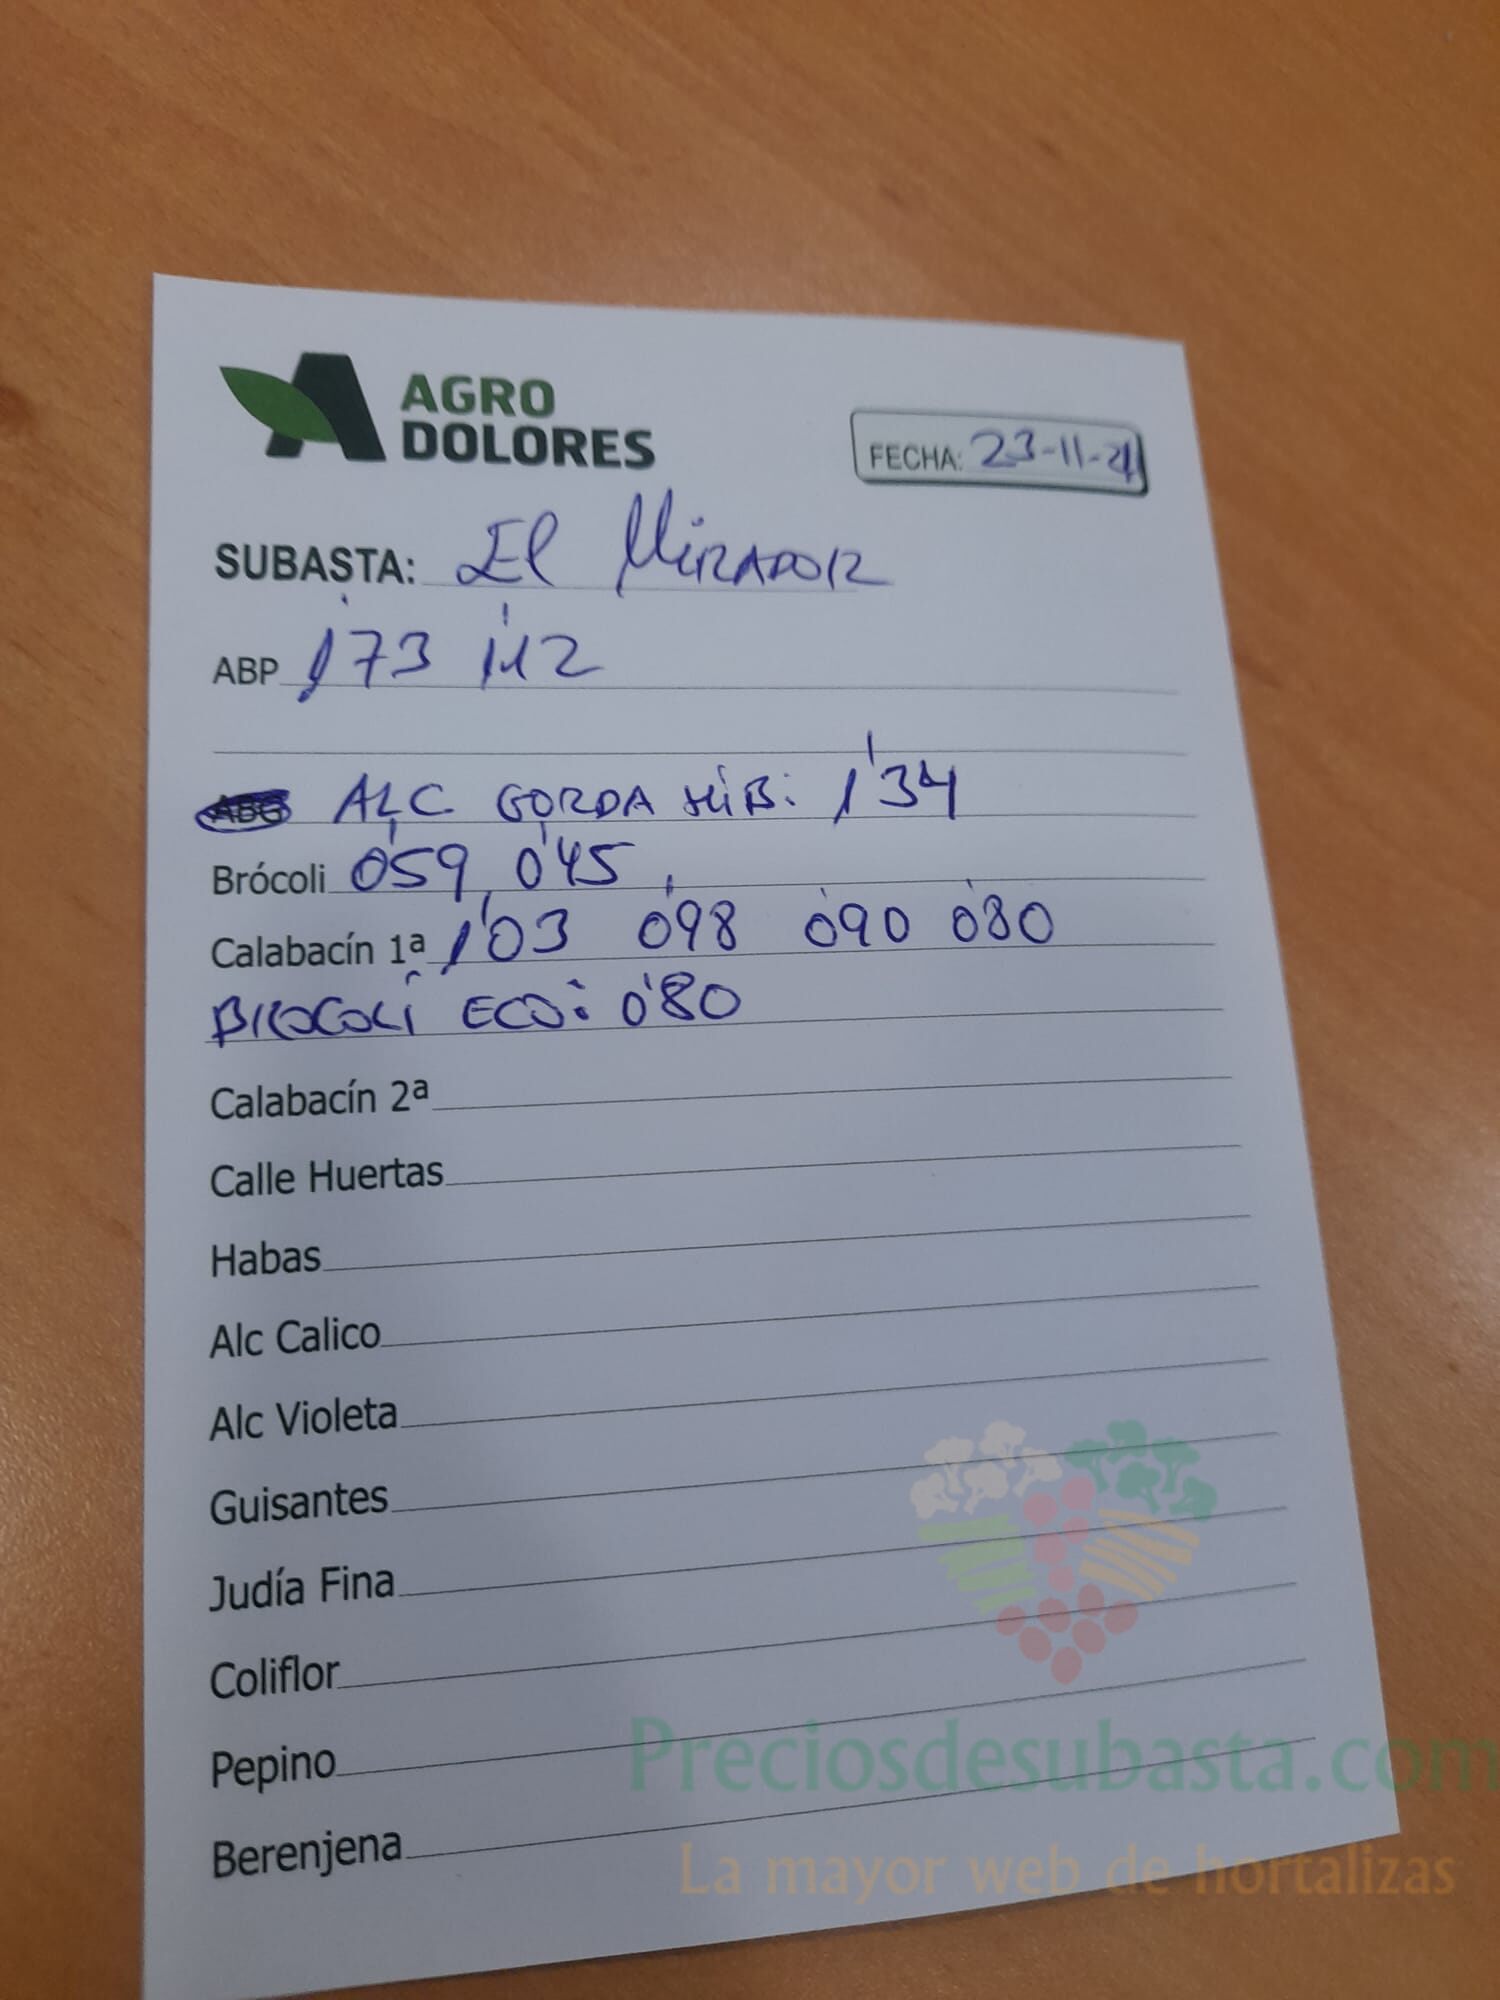 AGRO
DOLORES
FECHA: 23-11-21
SUBASTA: El MIRADOR
ABP 1'73 1'12
ALC GORDA HIB: 1'34
Brócoli 0'59 0'45
Calabacín 1ª 1'03 0'98 0'90 0'80
BROCOLI ECO: 0'80
Calabacín 2ª
Calle Huertas
Habas
Alc Calico
Alc Violeta
Guisantes
Judía Fina
Coliflor
Pepino
Berenjena
Preciosdesubasta.com
La mayor web de hortalizas